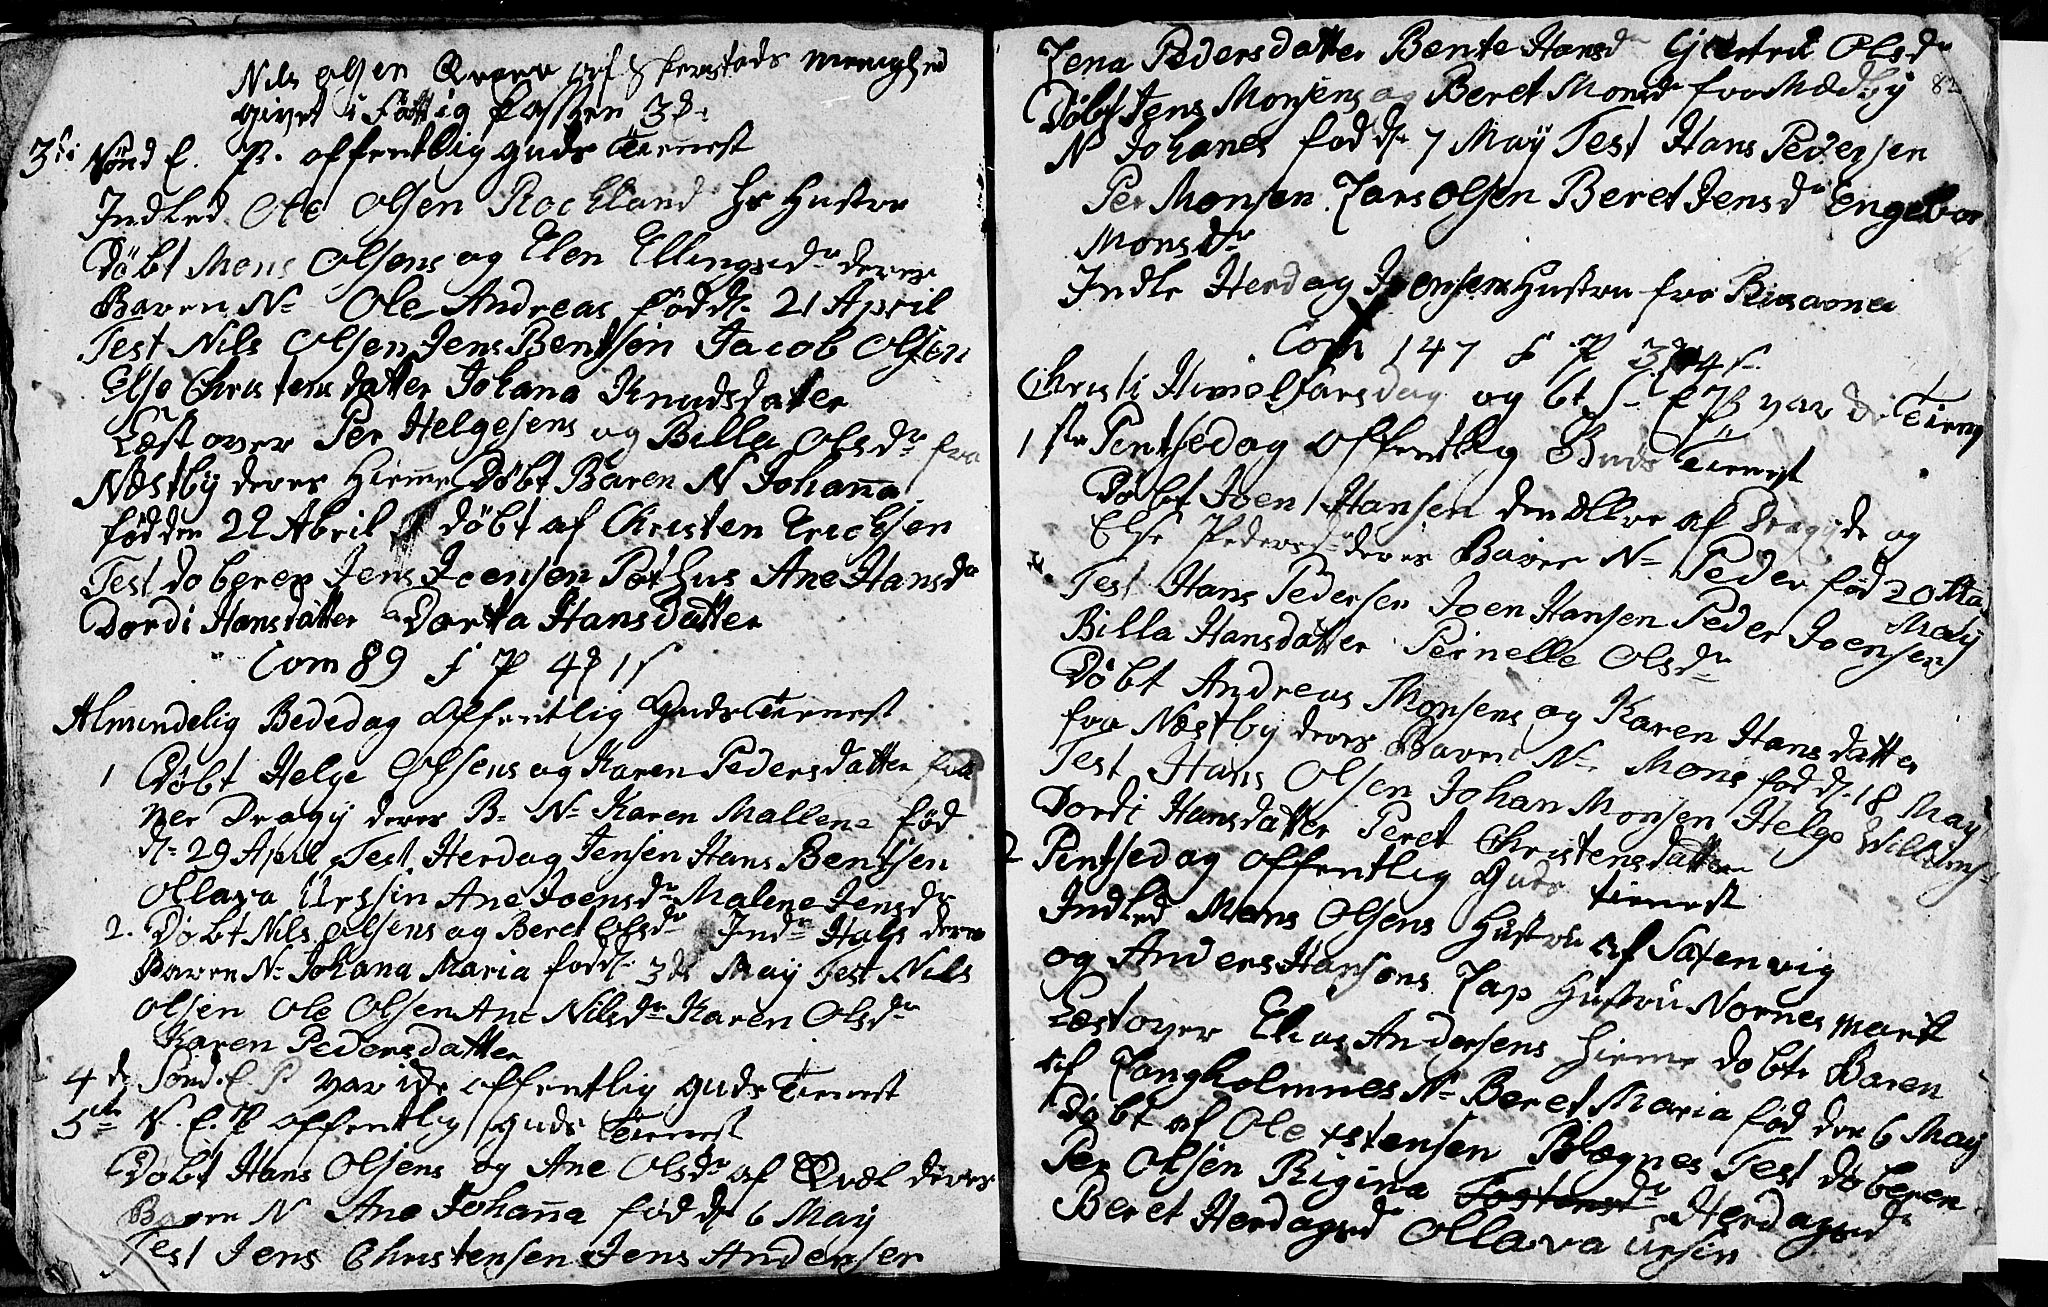 Nils Olsen af Skierstads Menighed
givet i Fattig Kassen 3
3de Sönd E. P. offentlig guds Tienest
Indled Ole Olsen Rockland Hs Hustru
Döbt Mons Olsens og Elen Ellingsdr deres
Baren N- Ole Andreas föd d- 21 April
Test Nils Olsen Jens Bentsen Jacob Olsen
Else Christensdatter Johana Knudsdatter
Læst over Per Helgesens og Billa Olsdr fra
Næstby deres Hieme Döbt Baren N Johana
född den 22 Abril döbt af Christen Erichsen
Test doberen Jens Joensen Ane Hansdr
Dordi Hansdatter Dorta Hansdatter
Com 89 f P 4 1 s
Almindelig Bededag Offentlig Guds Tienest
1 Döbt Helge Olsens og Karen Pedersdatter fra
ner Dragy deres B- N- Karen Mallene föd
d- 29 April Test Herdag Jensen Hans Bentsen
Ollava Urssin Ane Joensdr Malene Jensdr
2. Döbt Nils Olsens og Beret Olsdr Indr Hals deres
Baren N- Johana Maria föd d- 3de May Test Nils
Olsen Ole Olsen Ane Nilsdr Karen Olsdr
Karen Pedersdatter
4de Sönd E P var offentlig guds Tienest
5te S. E. P offentlig guds Tienest
Döbt Hans Olsens og Ane Olsdr af deres
Baren N Ane Johana föd d 6 May
Test Jens Christensen Jens Andersen
Lena Pedersdatter Bente Hansdr Giertrit Olsdr
82
Döbt Jens Monsens og Beret Monsdr fra Mædby
N Johanes föd d- 7 May Test Hans Pedersen
Per Monsen Lars Olsen Beret Jensdr Engebor
Monsdr
Indle Herdag Joensens Hustru fra
Com 147 f P 3 4 s
Christi Himelfarsdag og 6t S- E P var
1ste Pentsedag offentlig Guds Tienest
Döbt Joen Hansen den Ældre af Dragy og
Else Pedersdr deres Baren N- Peder föd 20
May
Test Hans Pedersen Joen Hansen Peder Joensen
Billa Hansdatter Pernelle Olsdr
Döbt Andreas Monsens og Karen Hansdatter
fra Næstby deres Baren N- Mons föd d- 18 May
Test Hans Olsen Johan Monsen Helge Willums-
Dordi Hansdatter Peret Christensdatter
2 Pentsedag offentlig guds tienest
Indled Mons Olsens Hustru af Saxenvig
og Anders Hansens Lap Hustru Nornes mark
Læst over Elias Andersens hieme döbte Baren
af Langholmnes N- Beret Maria föd den 6 May
Döbt af Ole Test döberen
Per Olsen Rigina Herdagsdr
Beret Herdagsdr Ollava Ursin